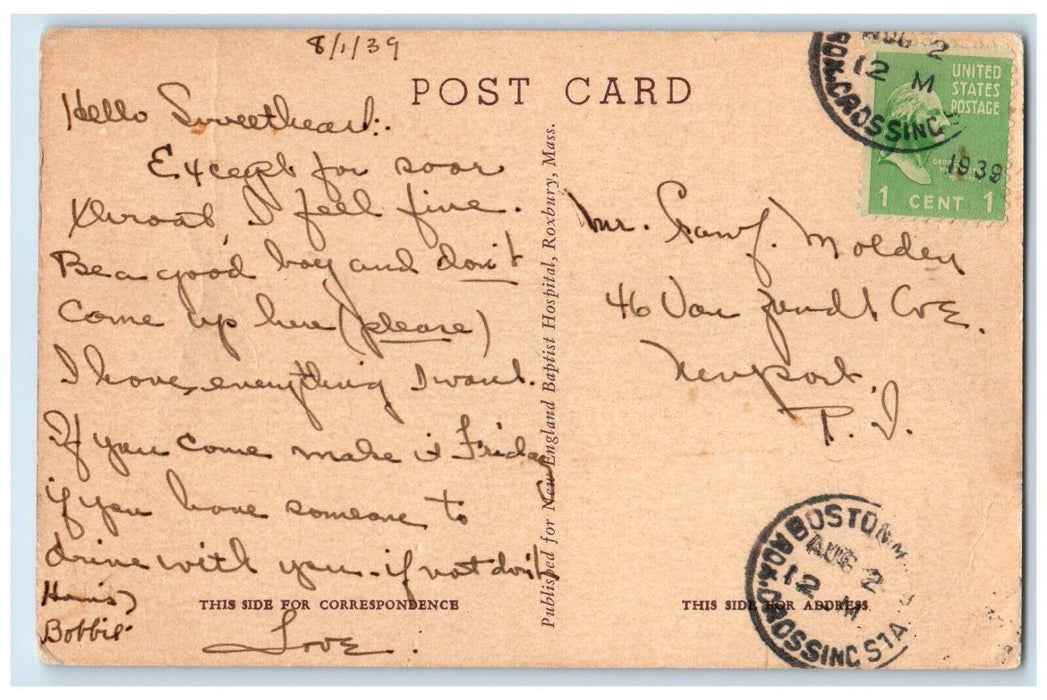 8/1/39
POST CARD
Hello Sweetheart:
Except for soar
throat, I feel fine.
Be a good boy and don't
come up here (please)
I have everything I want.
If you come make it Friday
if you have someone to
drive with you - if not don't
Bobbie
Love
THIS SIDE FOR CORRESPONDENCE
Published for New England Baptist Hospital, Roxbury, Mass.
AUG 2
12 M
ROX. CROSSING
1939
UNITED
STATES
POSTAGE
1 CENT 1
Mr. Molden
46 Van Zandt Ave.
Newport,
R.I.
THIS SIDE FOR ADDRESS
BOSTON
AUG 2
12 M
ROX. CROSSING STA